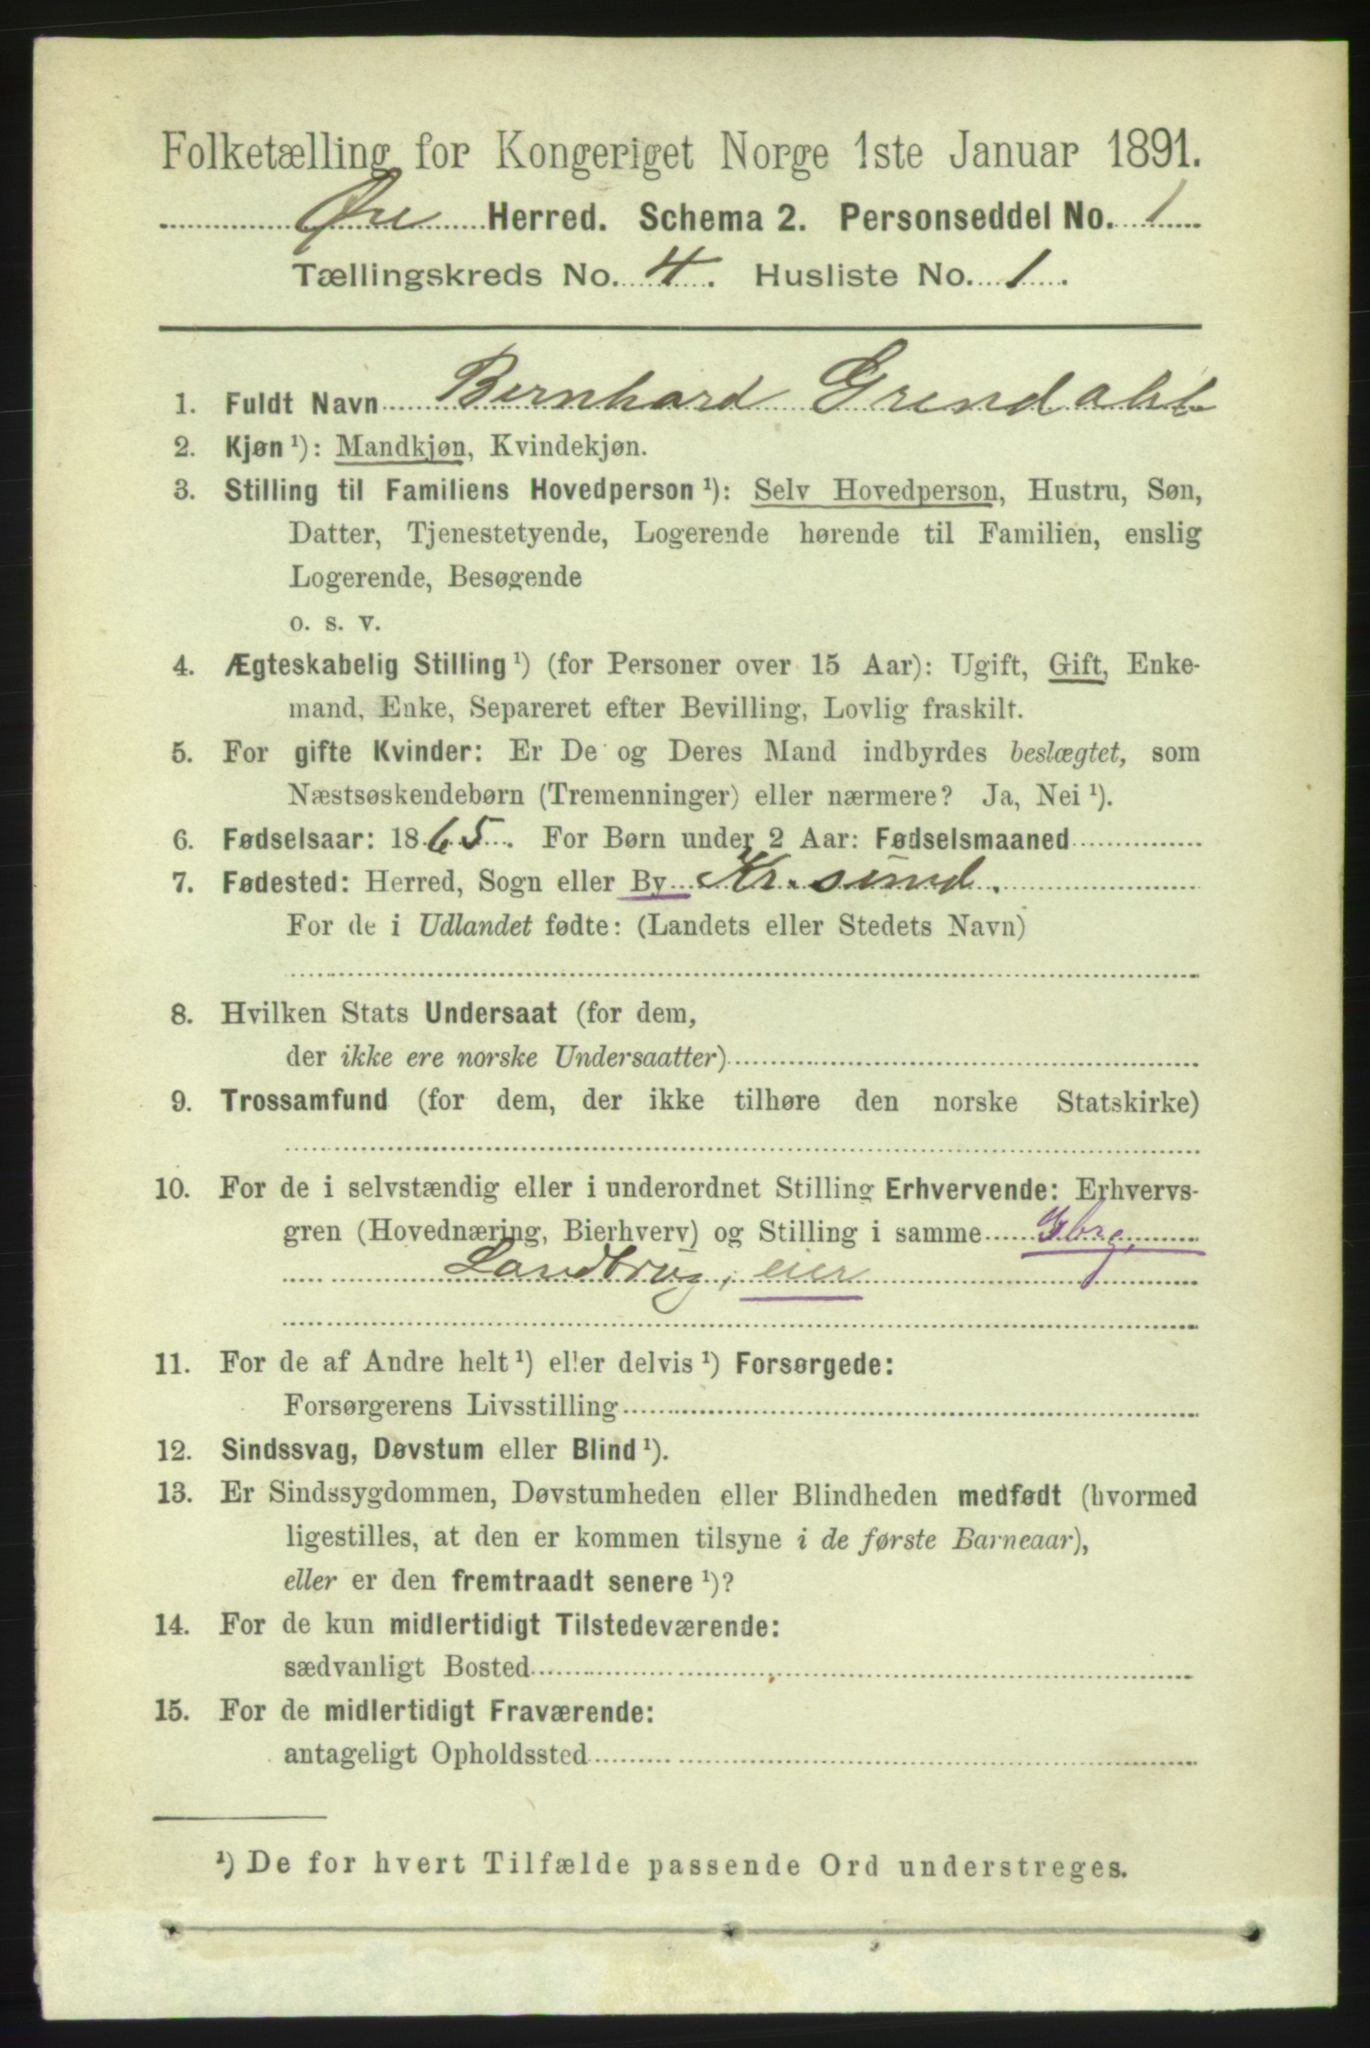 Folketælling for Kongeriget Norge 1ste Januar 1891.
Øre Herred. Schema 2. Personseddel No. 1
Tællingskreds No. 4. Husliste No. 1.
1. Fuldt Navn Bernhard Grendahl
2. Kjøn ¹): Mandkjøn, Kvindekjøn.
3. Stilling til Familiens Hovedperson ¹): Selv Hovedperson, Hustru, Søn,
Datter, Tjenestetyende, Logerende hørende til Familien, enslig
Logerende, Besøgende
o. s. v.
4. Ægteskabelig Stilling ¹) (for Personer over 15 Aar): Ugift, Gift, Enke-
mand, Enke, Separeret efter Bevilling, Lovlig fraskilt.
5. For gifte Kvinder: Er De og Deres Mand indbyrdes beslægtet, som
Næstsøskendebørn (Tremenninger) eller nærmere? Ja, Nei ¹).
6. Fødselsaar: 1865. For Børn under 2 Aar: Fødselsmaaned
7. Fødested: Herred, Sogn eller By Kr.sund.
For de i Udlandet fødte: (Landets eller Stedets Navn)
8. Hvilken Stats Undersaat (for dem,
der ikke ere norske Undersaatter)
9. Trossamfund (for dem, der ikke tilhøre den norske Statskirke)
10. For de i selvstændig eller i underordnet Stilling Erhvervende: Erhvervs-
gren (Hovednæring, Bierhverv) og Stilling i samme Gbrg,
Landbrug, eier
11. For de af Andre helt ¹) eller delvis ¹) Forsørgede:
Forsørgerens Livsstilling
12. Sindssvag, Døvstum eller Blind ¹).
13. Er Sindssygdommen, Døvstumheden eller Blindheden medfødt (hvormed
ligestilles, at den er kommen tilsyne i de første Barneaar),
eller er den fremtraadt senere ¹)?
14. For de kun midlertidigt Tilstedeværende:
sædvanligt Bosted
15. For de midlertidigt Fraværende:
antageligt Opholdssted
¹) De for hvert Tilfælde passende Ord understreges.